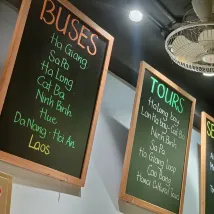 BUSES
Ha Giang
SaPa
Ha Long
Cat Ba
Ninh Binh
Hue
Da Nang - Hoi An
LAOS
TOURS
Halong bay
Lan Ha Bay - Cat Ba
Ninh Binh
Sa Pa
Ha Giang Loop
Cao Bang
Hanoi Cultural Tours